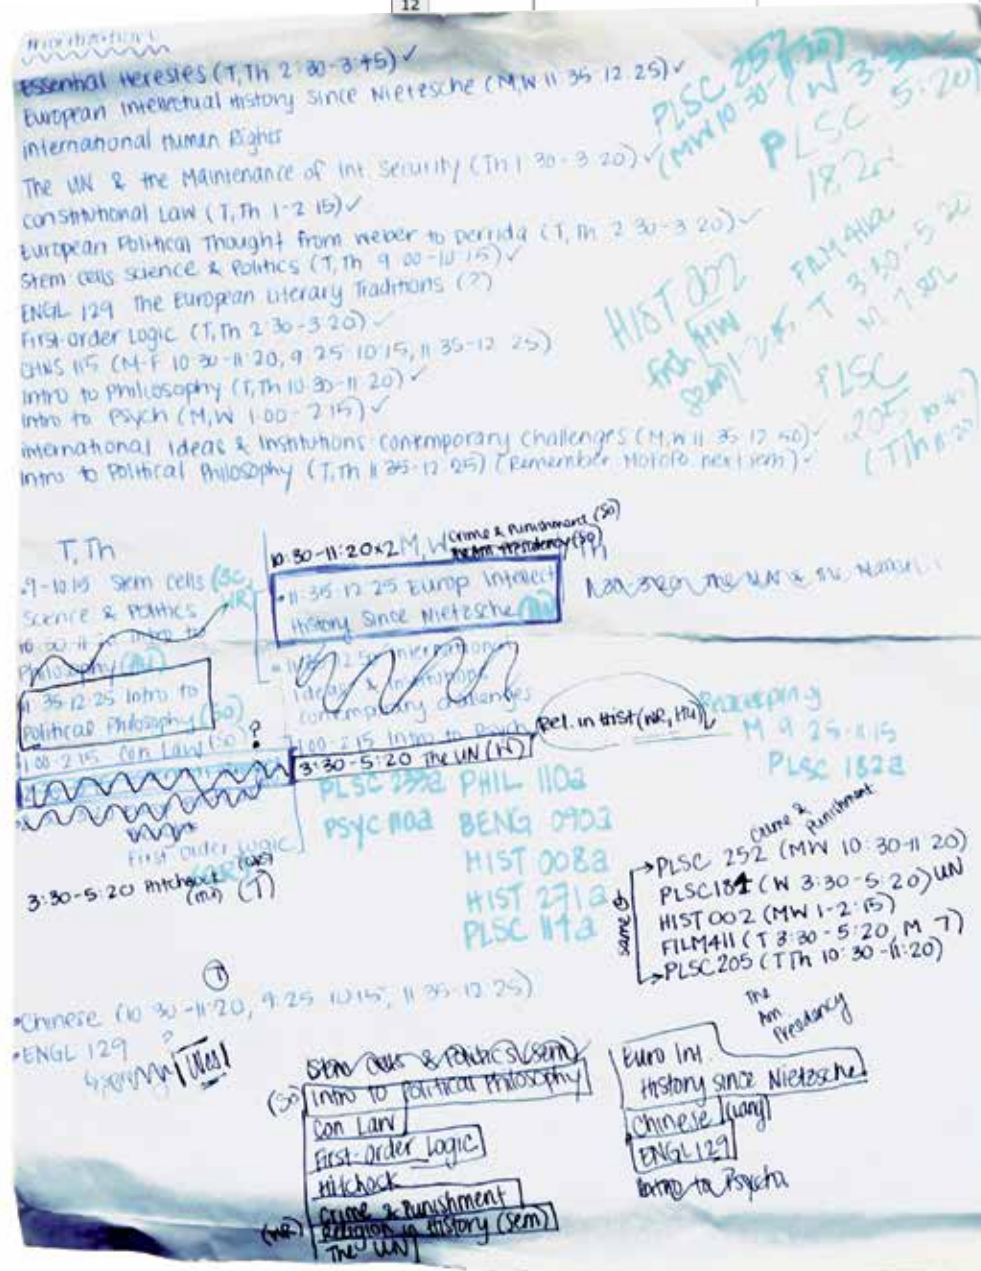 12
Essential Heresies (T, Th 2:30-3:45) ✓
European Intellectual History Since Nietzsche (M, W 11:35-12:25) ✓
International Human Rights
The UN & the Maintenance of Int. Security (Th 1:30-3:20) ✓
Constitutional Law (T, Th 1-2:15) ✓
European Political Thought from Weber to Derrida (T, Th 2:30-3:20) ✓
Stem cells science & Politics (T, Th 9:00-10:15) ✓
ENGL 129 The European Literary Traditions (?)
First-order Logic (T, Th 2:30-3:20) ✓
CHNS 115 (M-F 10:30-11:20, 9:25-10:15, 11:35-12:25)
Intro to Philosophy (T, Th 10:30-11:20) ✓
Intro to Psych (M, W 1:00-2:15) ✓
International Ideas & Institutions: Contemporary Challenges (M, W 11:35-12:50) ✓
Intro to Political Philosophy (T, Th 11:35-12:25) (Remember next sem) ✓
PLSC 252
(MW 10:30
(W 3:30
PLSC 5:20)
HIST 002
MW
FILM 411a
T 3:30-5:20
M 7
PLSC
205
(TTh 11:20)
T, Th
9-10:15 Stem cells (SC,
Science & Politics WR)
Intro to
Philosophy (HU)
11:35-12:25 Intro to
Political Philosophy (SO)
1:00-2:15 Con Law (SO) ?
First Order Logic
3:30-5:20 Hitchcock
(HU) (T)
10:30-11:20 x2 M, W Crime & Punishment (SO)
Am Presidency (SO)
11:35-12:25 Europ Intellect
History Since Nietzsche (HU)
International
Ideas & Institutions
Contemporary Challenges
1:00-2:15 Intro to Psych
3:30-5:20 The UN (W)
Rel. in Hist (WR, HU)
Th
The UN & the
Peacekeeping
M 9:25-11:15
PLSC 182a
PHIL 110a
PSYC 110a BENG 090a
HIST 008a
HIST 271a
PLSC 114a
Crime & Punishment
same
PLSC 252 (MW 10:30-11:20)
PLSC 184 (W 3:30-5:20) UN
HIST 002 (MW 1-2:15)
FILM 411 (T 3:30-5:20, M 7)
PLSC 205 (TTh 10:30-11:20)
The
Am
Presidency
Chinese (10:30-11:20, 9:25-10:15, 11:35-12:25)
ENGL 129 ?
Stem Cells & Politics (sem)
(SO) Intro to Political Philosophy
Con Law
First-Order Logic
Hitchcock
Crime & Punishment
(WR) Religion in History (sem)
The UN
Euro Int.
History since Nietzsche
Chinese (Lang)
ENGL 129
Intro to Psych